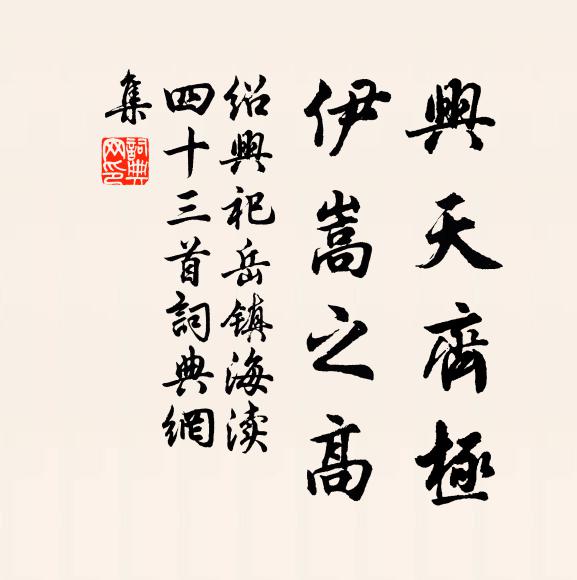 興天齊極
伊嵩之高
绍興祀岳镇海渎
四十三首詞典網
集
詞典
网印